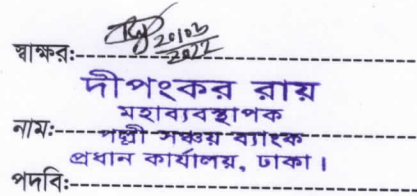 স্বাক্ষর:
দীপংকর রায়
মহাব্যবস্থাপক
নাম:
পল্লী সঞ্চয় ব্যাংক
প্রধান কার্যালয়, ঢাকা।
পদবি: